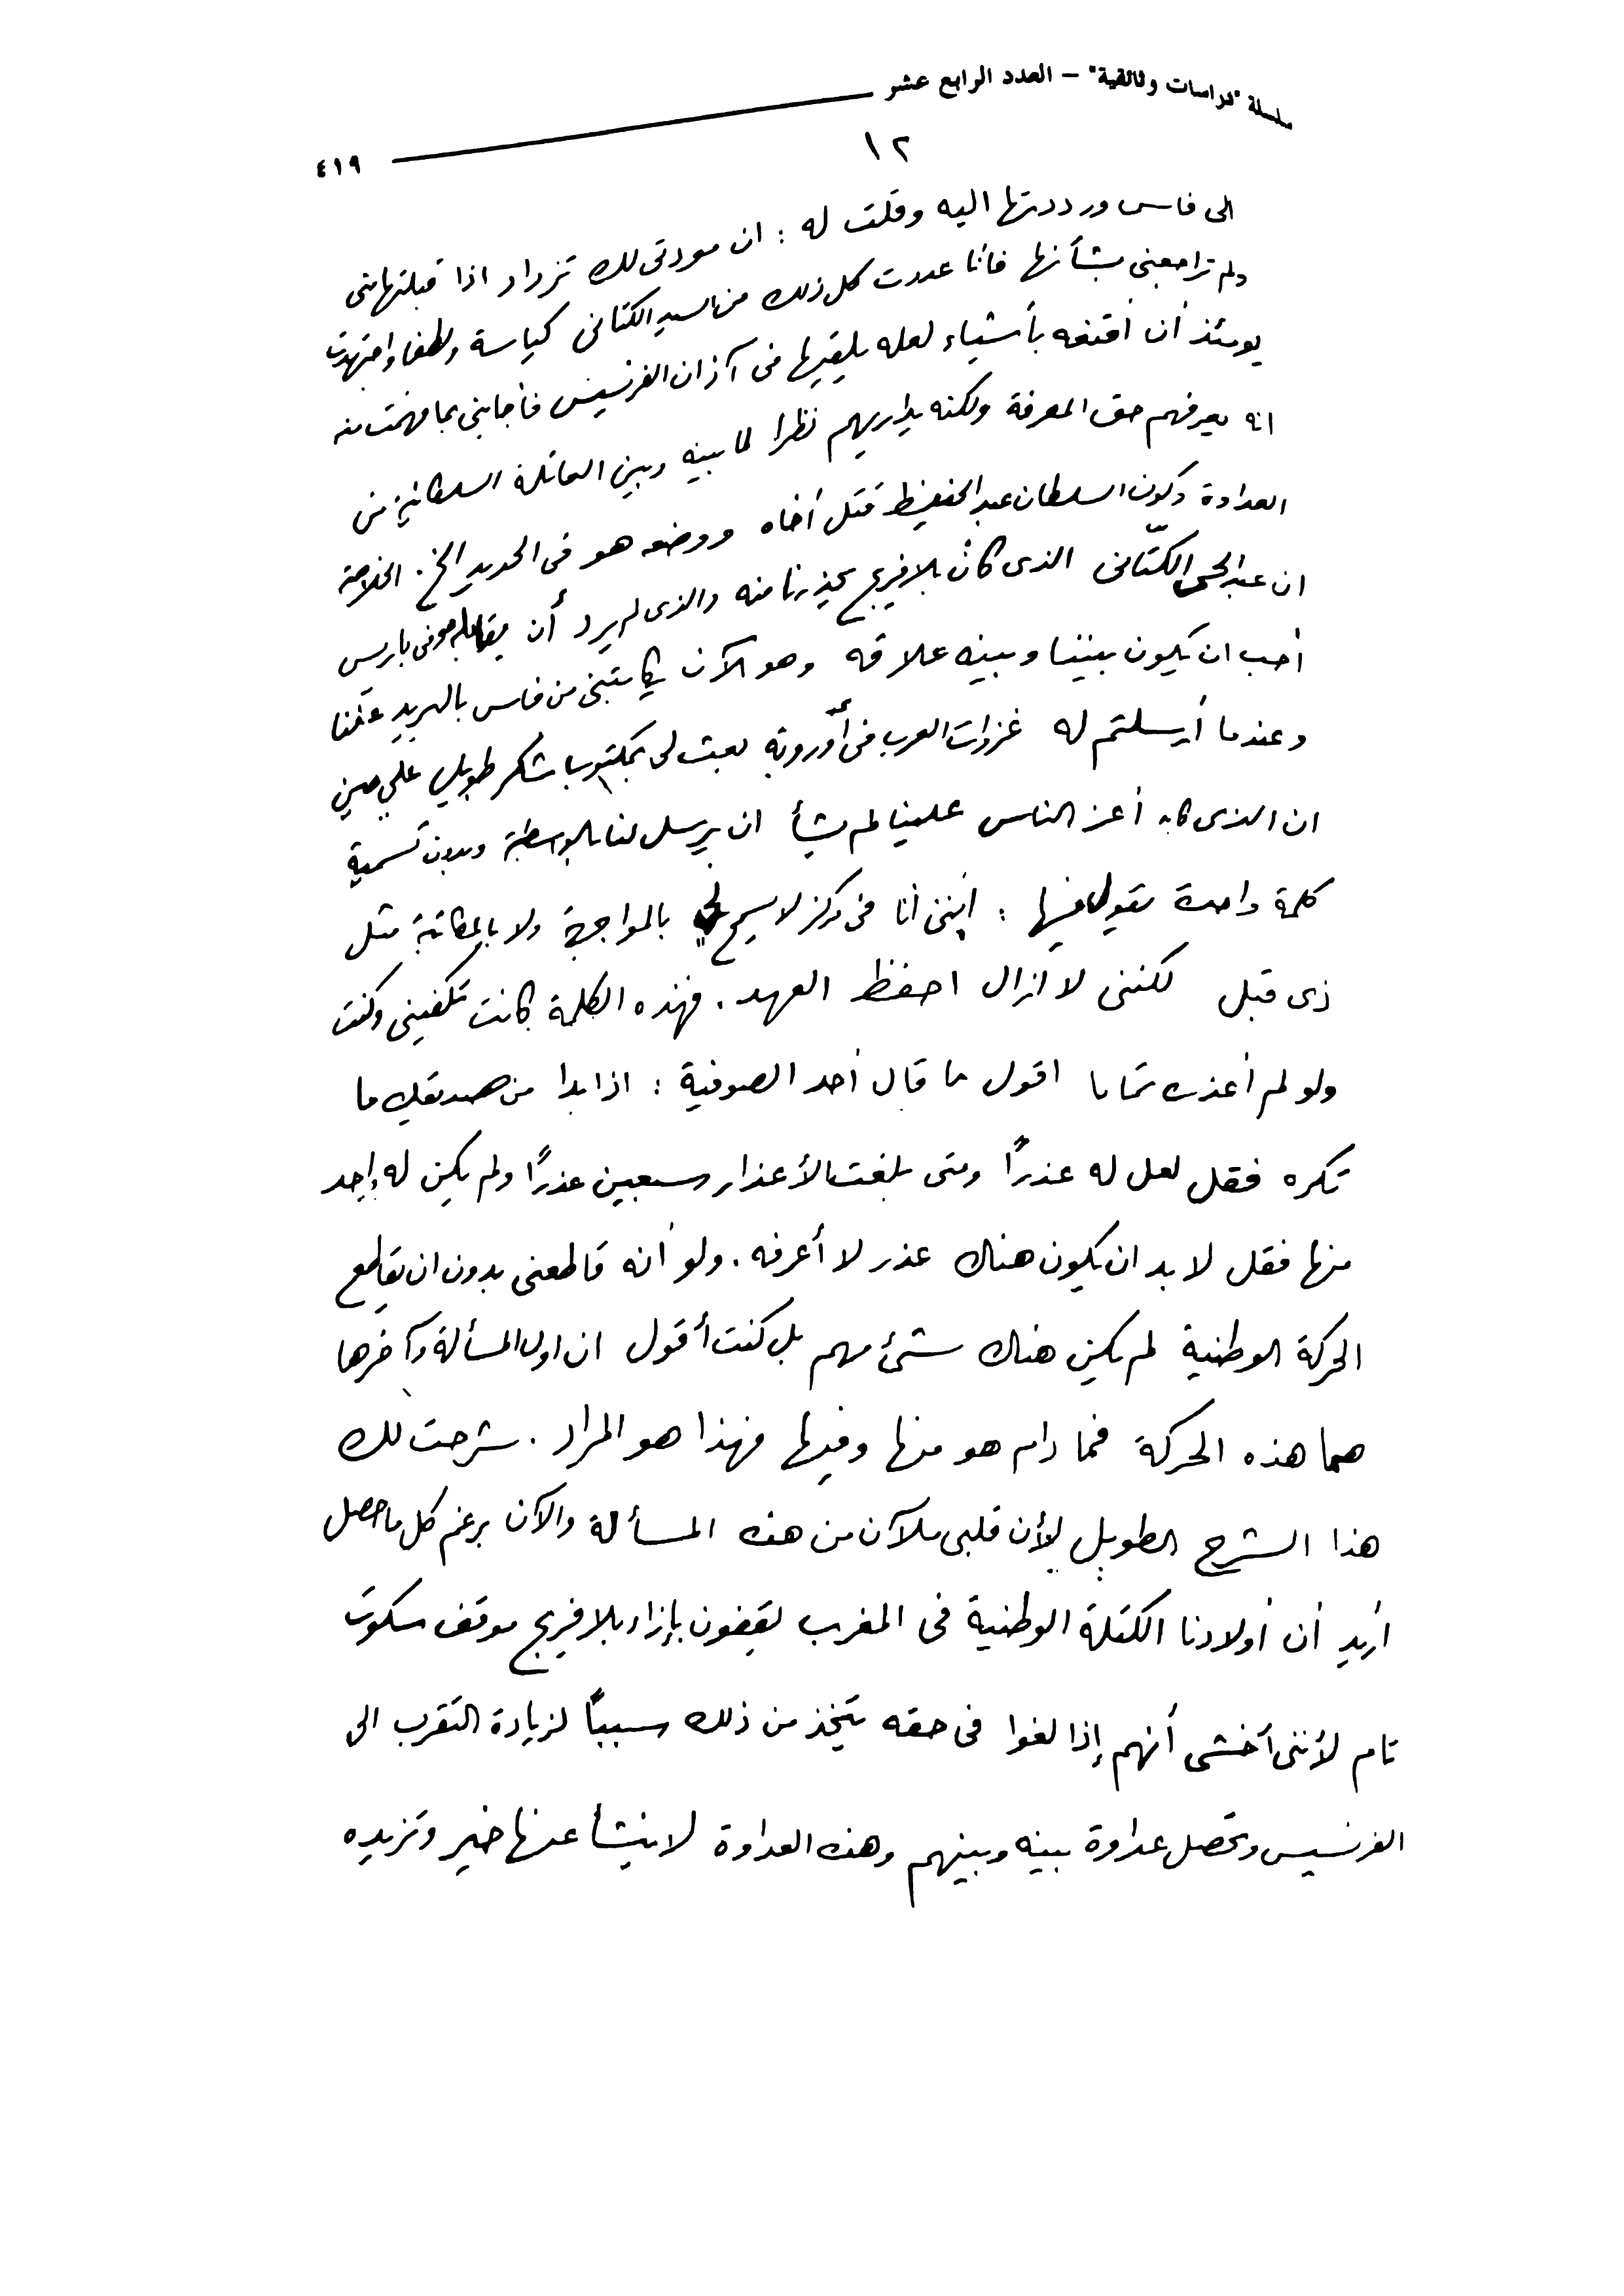 سلسلة "دراسات وثائقية" – العدد الرابع عشر
٤١٩
١٢
الى فاس ورددتها اليه وقلت له : ان مودتى لك تزداد اذا قبلتها منى
ولم تراجعنى بشأنها فأنا عددت كل ذلك من السيد الكتانى كياسة ولطفا واجتهدت
يومئذ أن أقنعه بأشياء لعله يلقيها فى آذان الفرنسيس فأجابنى بما فهمت منه
انه يعرفهم حق المعرفة ولكنه يداريهم نظرا لما بينه وبين العائلة السلطانية من
العداوة وكون السلطان عبد الحفيظ قتل أخاه ووضعه هو فى الحديد الخ . الخلاصة
ان عبد الحى الكتّانى الذى كان بلافريج يحذرنا منه والذى لم يرد أن يقابله هو فى باريس
أحب ان يكون بيننا وبينه علاقه وهو الآن يكاتبنى من فاس بالبريد علنا
وعندما أرسلتم له غزوات العرب فى أوروبة بعث لى بمكتوب شكر طويل على حين
ان الذى كان أعز الناس علينا لم يشأ ان يرسل لنا بالواسطة وبدون تسمية
كلمة واحدة يقول فيها : إننى أنا فى مركز لا يسمح لى بالمواجهة ولا بالمكاتبة مثل
ذى قبل لكننى لا ازال احفظ العهد . فهذه الكلمة كانت تكفينى وكنت
ولو لم أعذره تماما اقول ما قال أحد الصوفية : اذا بدا من صديقك ما
تكره فقل لعل له عذرًا ومتى بلغت الأعذار سبعين عذرًا ولم يكن له إحد
منها فقل لا بد ان يكون هناك عذر لا أعرفه . ولو أنه قاطعنى بدون ان يقاطع
الحركة الوطنية لم يكن هناك شئ مهم بل كنت أقول ان اول المسألة وآخرها
هما هذه الحركة فما دام هو منها وفيها فهذا هو المراد . شرحت لك
هذا الشرح الطويل لأن قلبى ملآن من هذه المسألة والآن برغم كل ما حصل
أريد أن أولادنا الكتلة الوطنية فى المغرب يقفون بإزاء بلافريج موقف سكوت
تام لأننى أخشى أنهم إذا لغوا فى حقه يتخذ من ذلك سببًا لزيادة التقرب الى
الفرنسيس وتحصل عداوة بينه وبينهم وهذه العداوة لا ينشأ عنها خير وتزيده